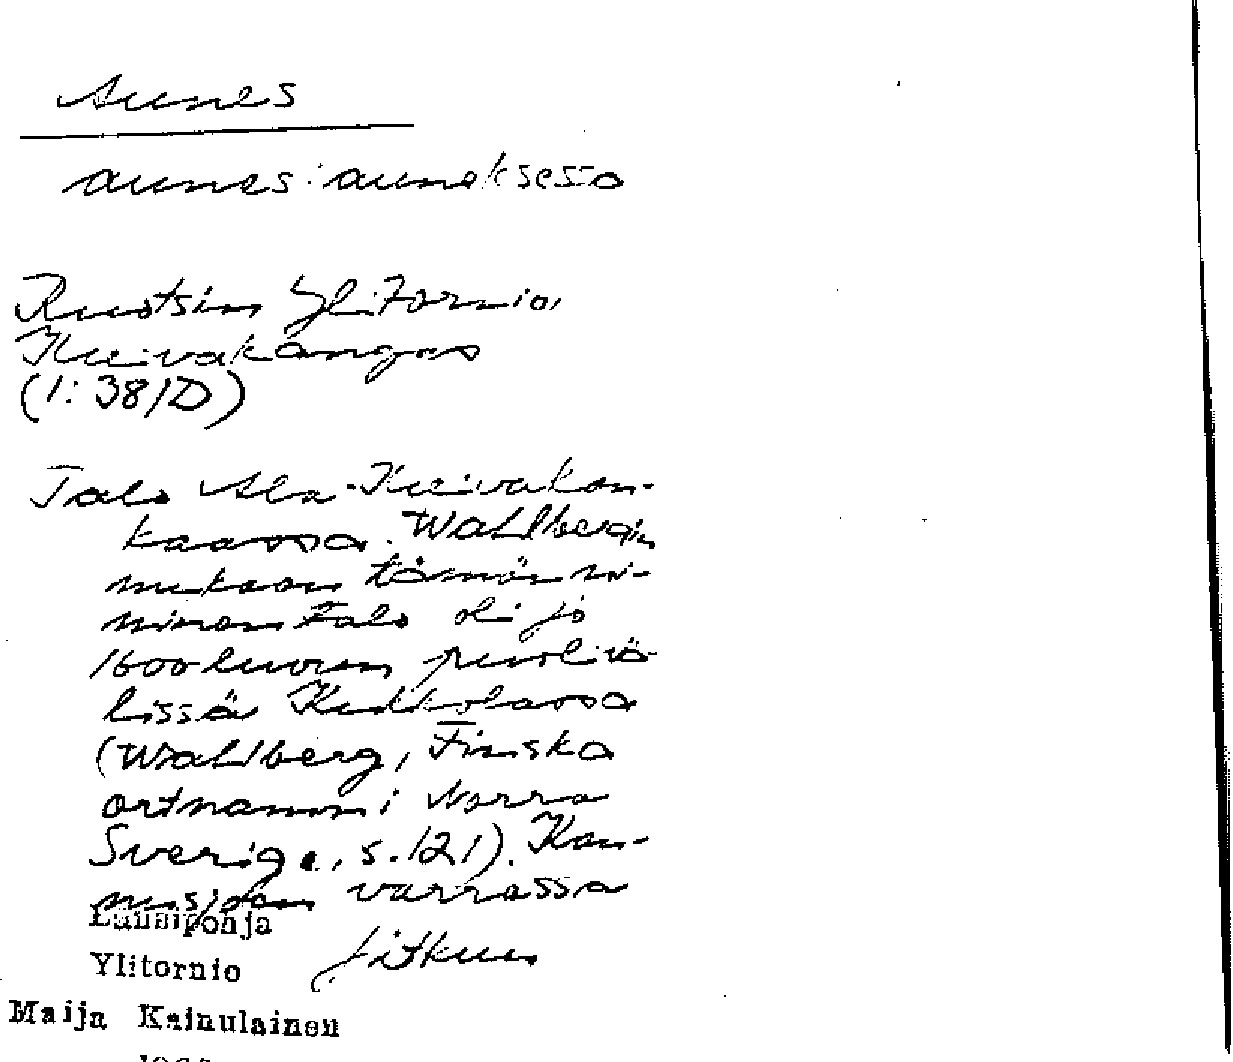 Aunes
aunes : auneksessa
Ruotsin Ylitornio,
Kuivakangas
(1: 38/D)
Talo Ala-Kuivakan-
kaassa. Wahlbergin
mukaan tämän ni-
minen talo oli jo
1600 luvun puolivä-
lissä Kukkolassa
(Wahlberg, Finska
ortnamn i Norra
Sverige, s. 121). Kan-
nusjoen varrassa
Länsipohja
Ylitornio jatkuu
Maija Kainulainen